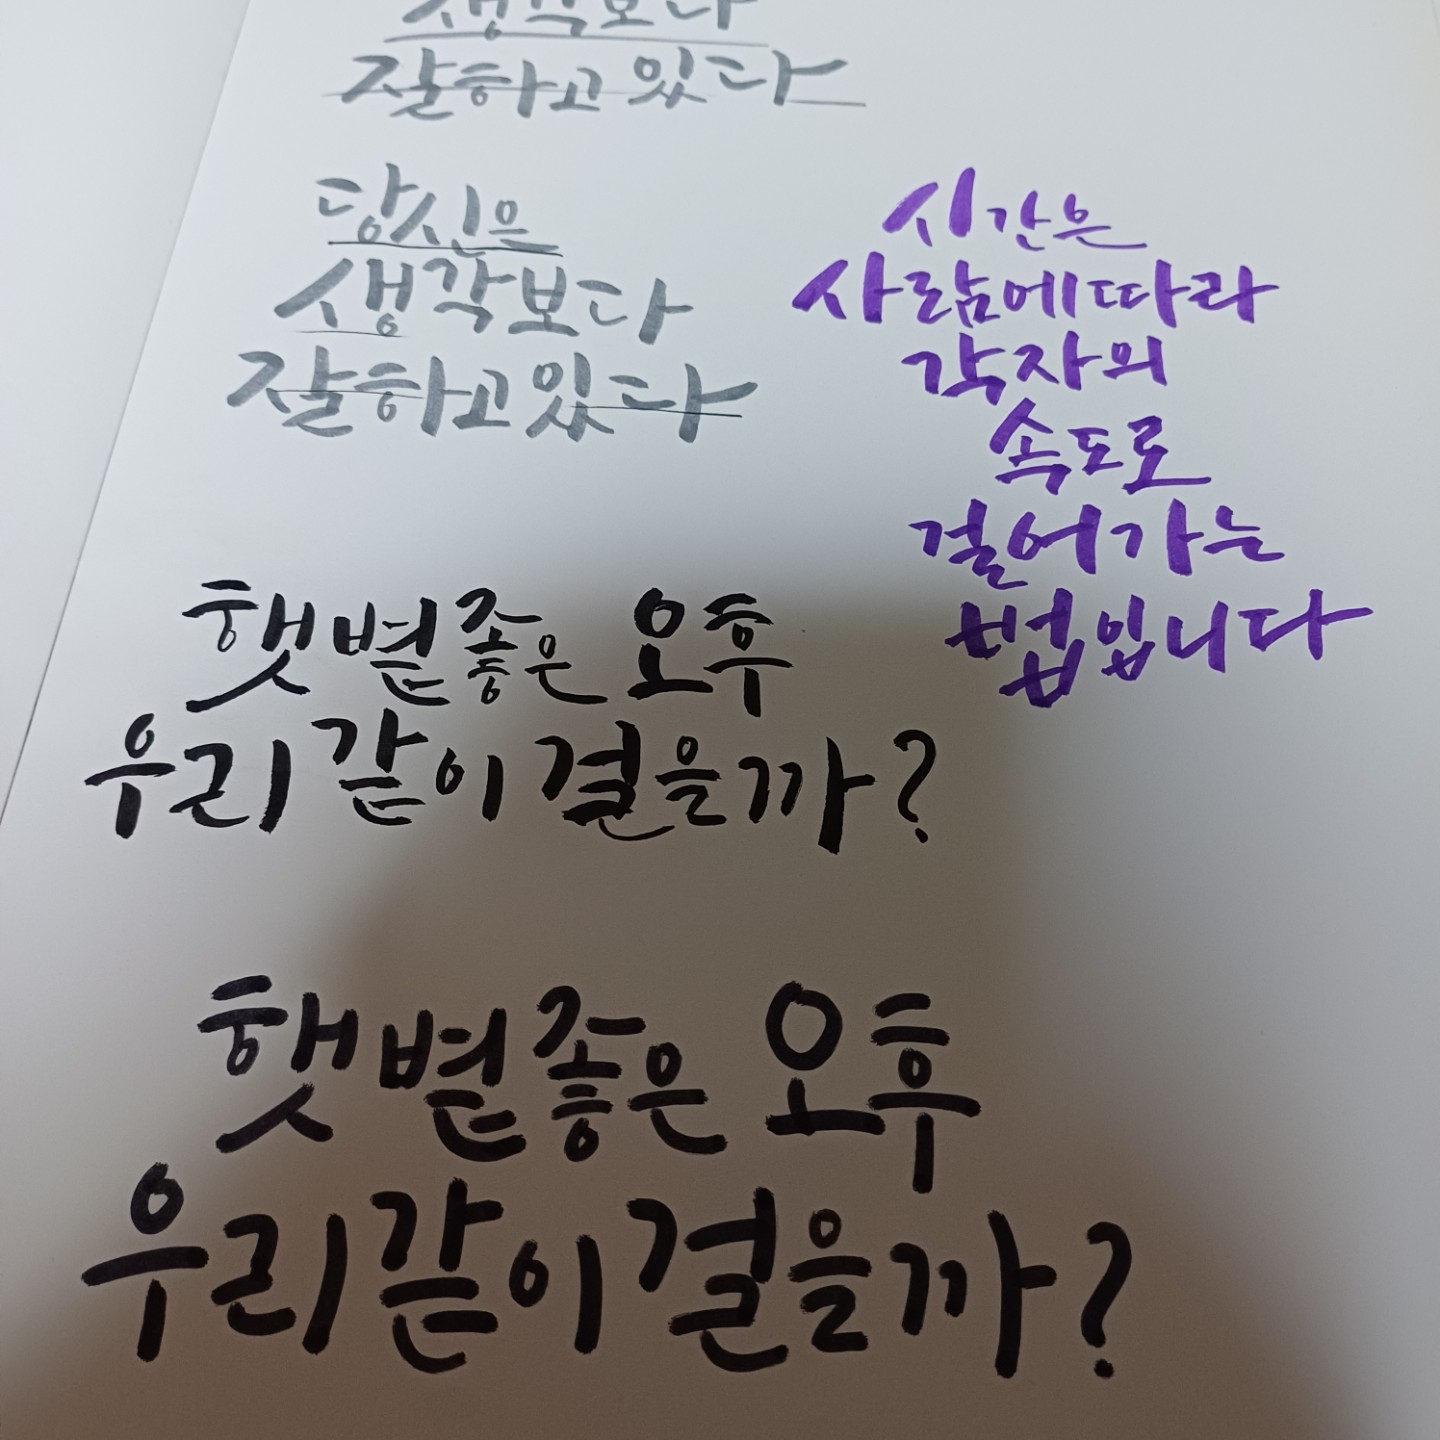 생각보다
잘하고 있다
당신은
생각보다
잘하고 있다
시간은
사람에 따라
각자의
속도로
걸어가는
법입니다
햇볕 좋은 오후
우리 같이 걸을까?
햇볕 좋은 오후
우리 같이 걸을까?